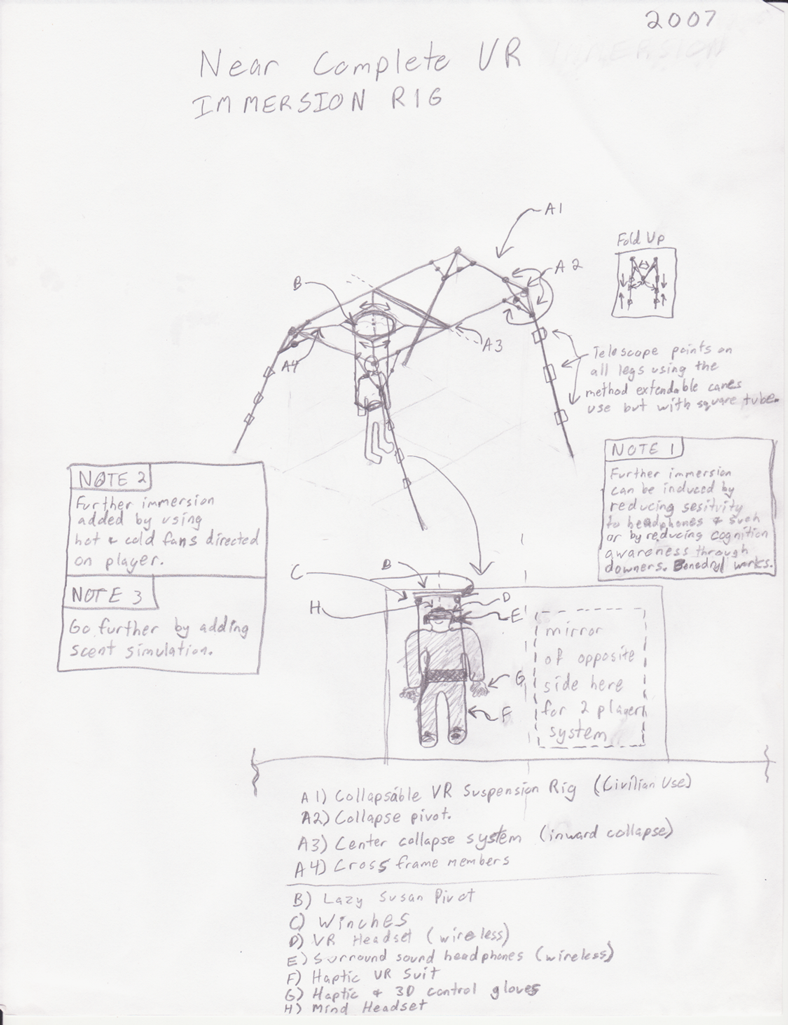 2007
Near Complete VR
IMMERSION RIG
A1
Fold Up
A2
B
A3
A4
Telescope points on
all legs using the
method extendable canes
use but with square tube.
NOTE 1
Further immersion
can be induced by
reducing sesitvity
to headphones & such
or by reducing cognition
awareness through
downers. Benadryl works.
NOTE 2
Further immersion
added by using
hot & cold fans directed
on player.
NOTE 3
Go further by adding
scent simulation.
C
B
H
D
E
G
F
mirror
of opposite
side here
for 2 player
system
A1) Collapsable VR Suspension Rig (Civilian Use)
A2) Collapse pivot.
A3) Center collapse system (inward collapse)
A4) Cross frame members
B) Lazy Susan Pivot
C) Winches
D) VR Headset (wireless)
E) Surround sound headphones (wireless)
F) Haptic VR Suit
G) Haptic & 3D control gloves
H) Mind Headset